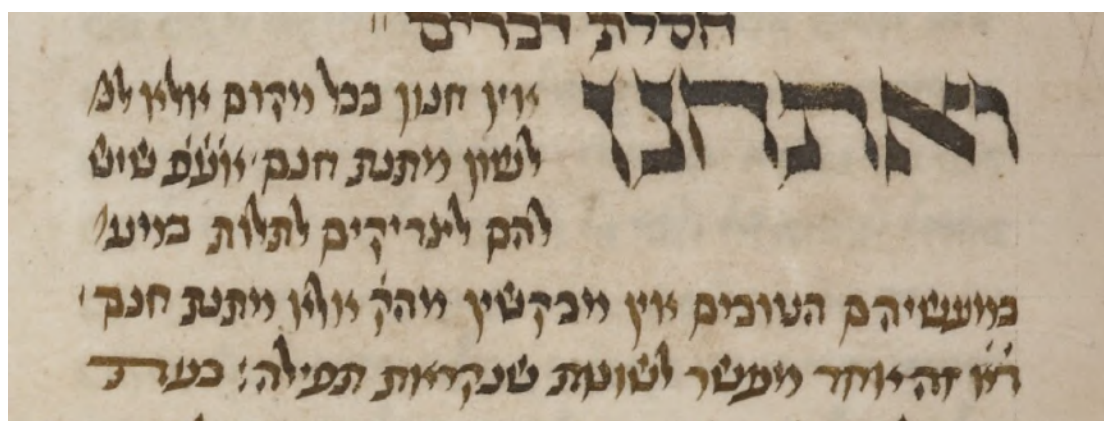 חסלת דברים
ואתחנן אין חנון בכל מקום אלא לפ'
לשון מתנת חנם אע"פ שיש
להם לצדיקים לתלות במע'
במעשיהם הטובים אין מבקשין מהק' אלא מתנת חנם
ד"א זה אחד מעשר לשונות שנקראות תפילה: בעת